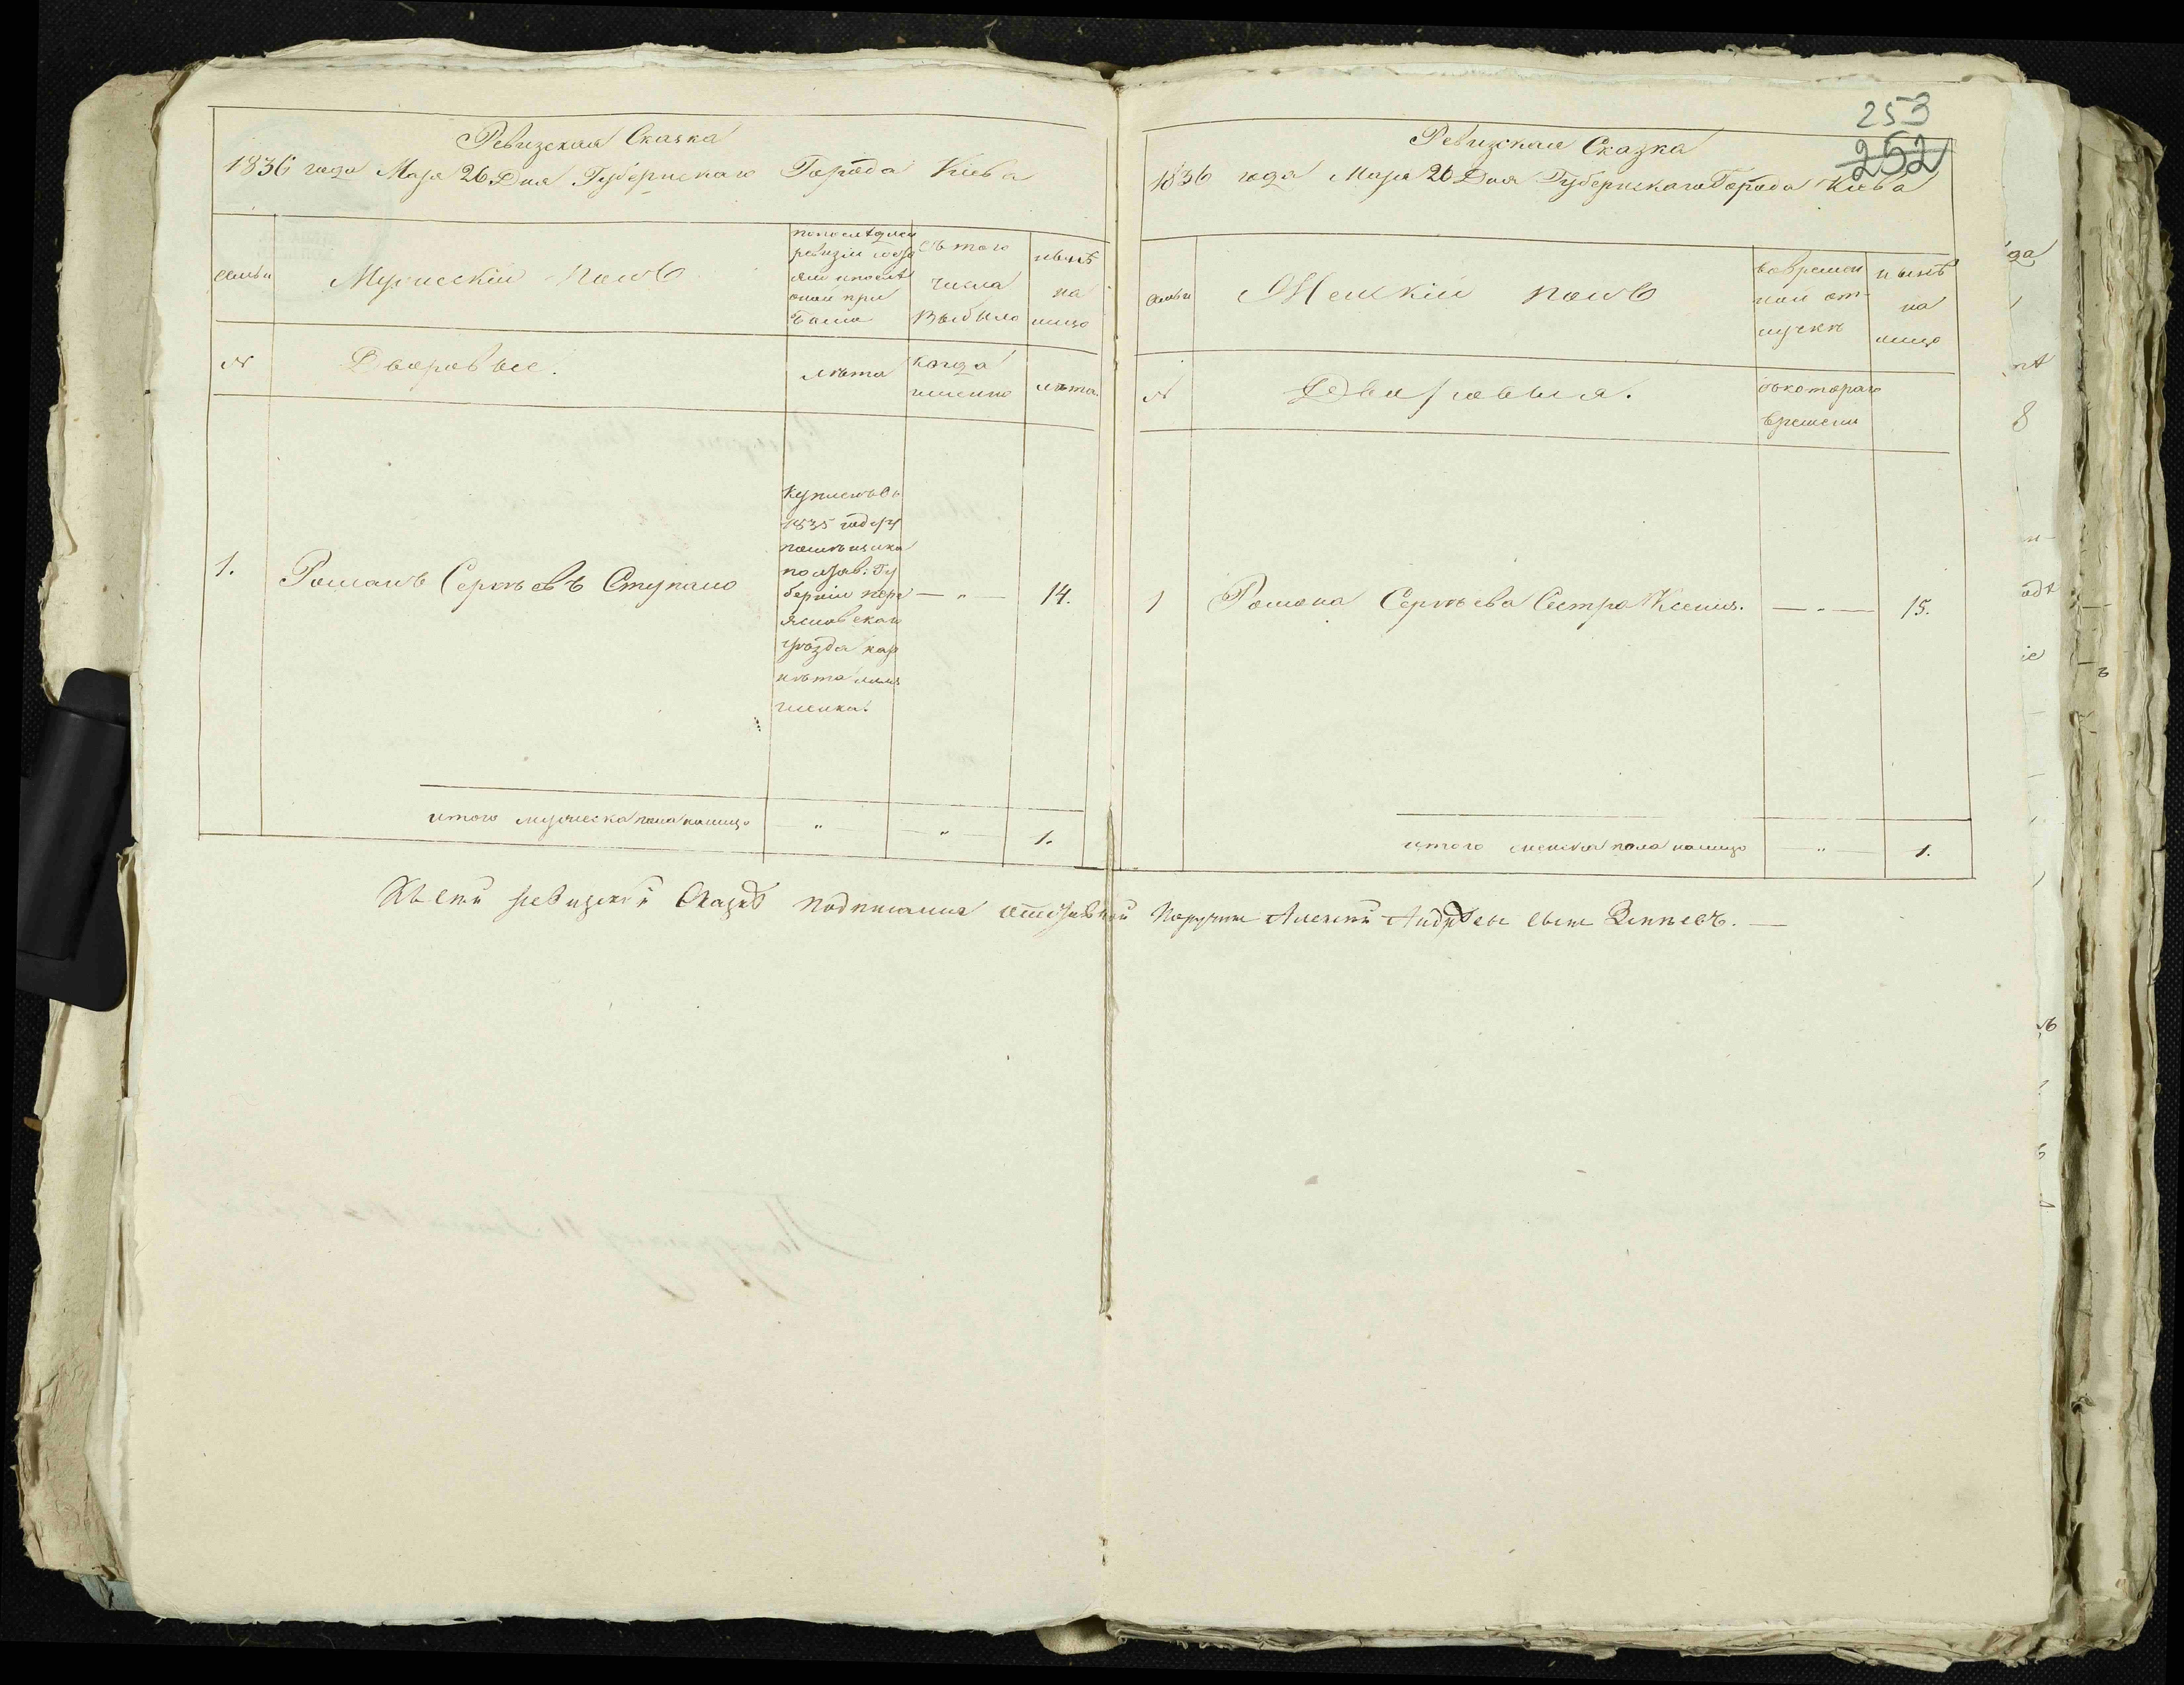 Ревизская Сказка
1836 года Маія 26 Дня Губернскаго Города Кіева
семьи
Мужескій полъ
по последней
ревизіи состо
яло и после
оной при
было
съ того
числа
выбыло
нынѣ
на
лицо
№
Дворовые.
лѣта
когда
именно
лѣта.
1.
Романъ Сергѣевъ Ступано
Купленъ въ
1835 году у
помѣщика
полтав: Гу
берніи
уѣзда
— „ —
14.
итого мужеска пола налицо
„
„
1.
253
252
Ревизская Сказка
1836 года Маія 26 Дня Губернскаго Города Кіева
семьи
Женскій полъ
во времен
ной от
лучкѣ
нынѣ
на
лицо
№
Дворовыя.
съ котораго
времени
1
Романа Сергѣева Сестра Ксения.
— „ —
15.
итого женска пола налицо
„
1.
Къ сей ревизской Сказкѣ подписался отставной Поручик Алексей Андреев сын